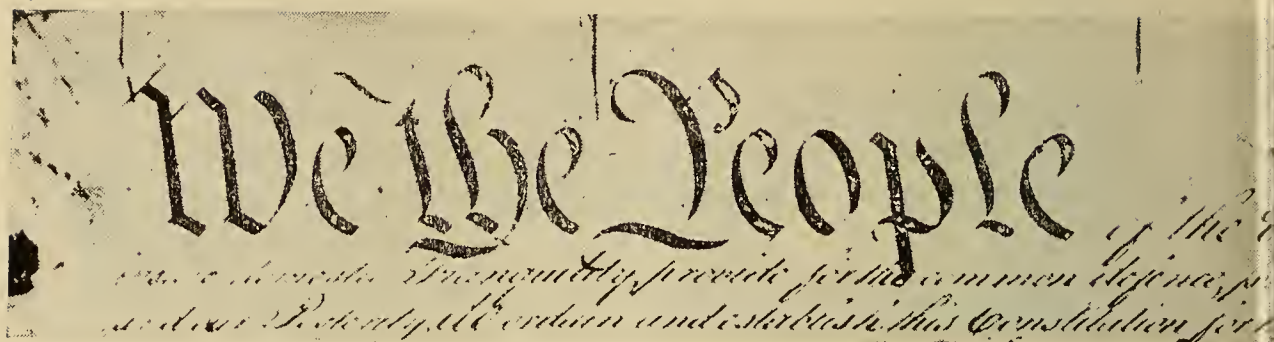 We the People
of the
insure domestic Tranquility, provide for the common defence, p
and our Posterity, do ordain and establish this Constitution for